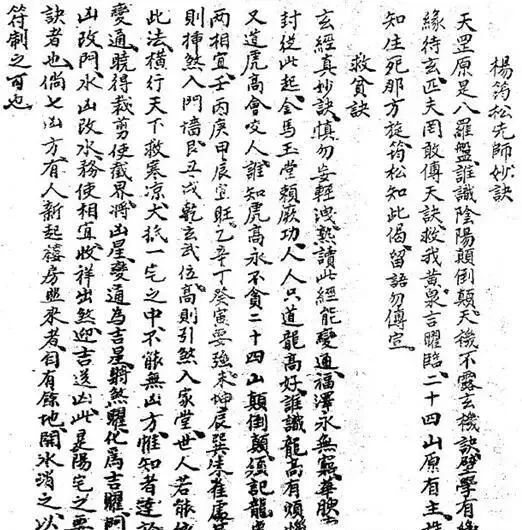 楊筠松先師妙訣
天罡原是八羅盤誰識陰陽顛倒顛天機不露玄機訣壁學有
緣待玄匹夫罔敢傳天訣救我黃泉言曜臨二十四山原有主
知住死那方旋筠松知此偈留語勿傳宣
救貧訣
玄經真妙訣慎勿妄輕洩熟讀此經能變通福澤永無窮華腴
封從此起金馬玉堂賴厥功人人只道龍高好誰識龍高有煩惱
又道虎高會咬人誰知虎高永不貪二十四山顛倒顛須記龍
兩相宜壬丙庚甲辰宜旺乙辛丁癸寅要強未坤辰巽朱雀
則掃煞入門墻艮丑戌乾玄武位高則引煞入家堂世人若能
此法橫行天下救寒凉大抵一宅之中不能無凶方惟知者達於
變通曉得裁剪使截界將凶星變通為吉星將煞曜化為吉曜門
山改門水山改水務使相宜收祥出煞迎吉送凶此是陽宅之要
訣者也倘七凶方有人新起禧房照來者自有餘地開水消之以
符制之可也